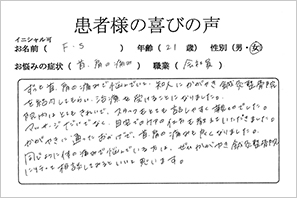 患者様の喜びの声
イニシャル可
お名前（ F・S ） 年齢（ 21 歳） 性別（男・女）
お悩みの症状（ 首、肩の痛み ） 職業（ 会社員 ）
私も首、肩の痛みで悩んでいて、知人にかがやき鍼灸整骨院
を紹介してもらい、治療を受けることになりました。
院内はとてもきれいで、スタッフもとても話しやすく親しみやすいでした。
マッサージだけでなく、自宅での体の
かがやきに通ったおかげで、首、肩の痛みも良くなりました。
同じように体の痛みで悩んでいる方は、ぜひかがやき鍼灸整骨院
に行って相談してみるといいと思います。